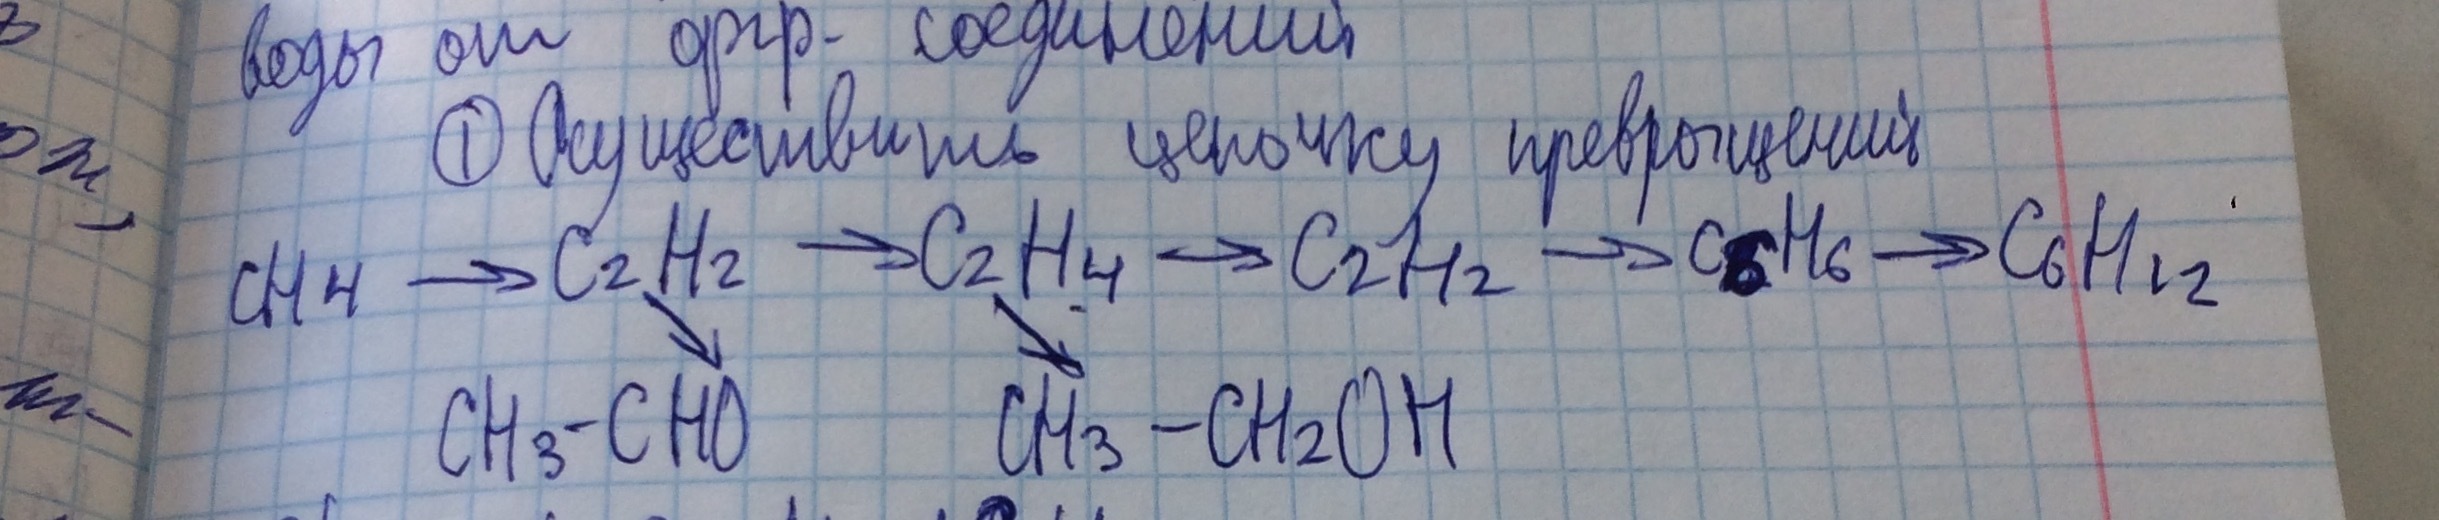 воды от орг. соединений
① Осуществить цепочку превращений
CH4 → C2H2 → C2H4 → C2H2 → C6H6 → C6H12
CH3-CHO CH3-CH2OH